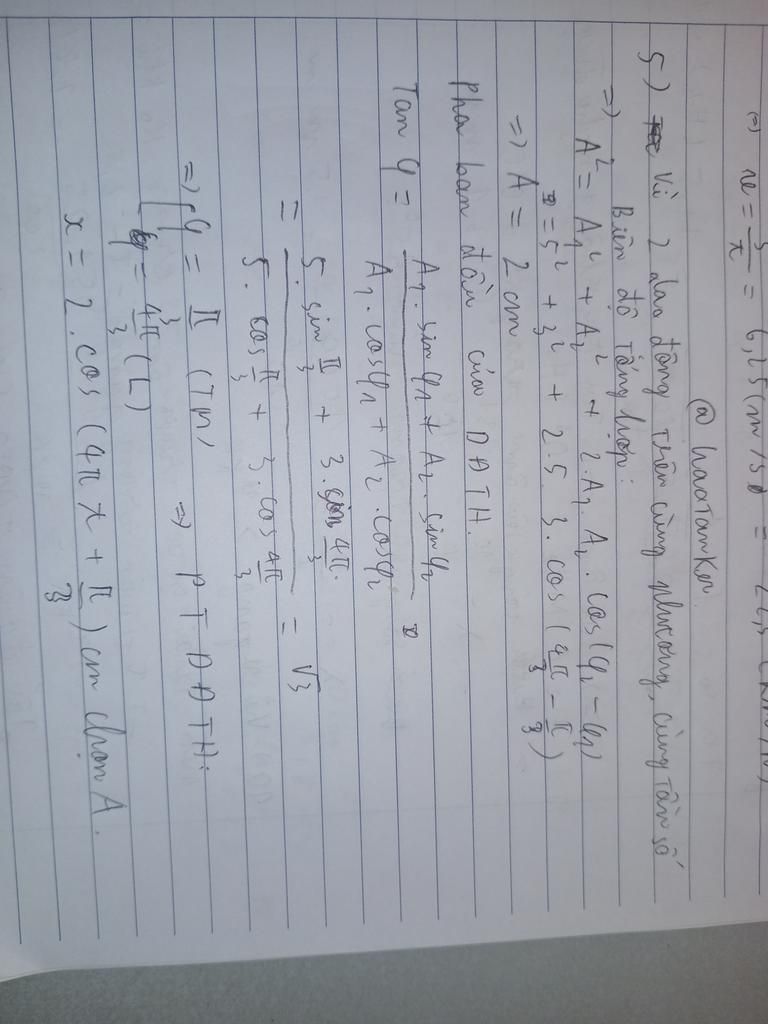 (=) v = 5/x = 6,25 (m/s) = 22,5 (km/h)
@ haotanker
5) Vì 2 dao động trên cùng phương, cùng tần số
Biên độ tổng hợp:
=) A² = A₁² + A₂² + 2.A₁.A₂.cos(φ₂ - φ₁)
= 5² + 3² + 2.5.3.cos(4π/3 - π/3)
=) A = 2 cm
Pha ban đầu của DĐTH.
Tan φ = (A₁.sinφ₁ + A₂.sinφ₂)/(A₁.cosφ₁ + A₂.cosφ₂)
= (5.sin π/3 + 3.sin 4π/3)/(5.cos π/3 + 3.cos 4π/3) = √3
=) [φ = π/3 (Tm) => PT DĐTH:
φ = 4π/3 (L)
x = 2.cos(4πx + π/3) cm chọn A.